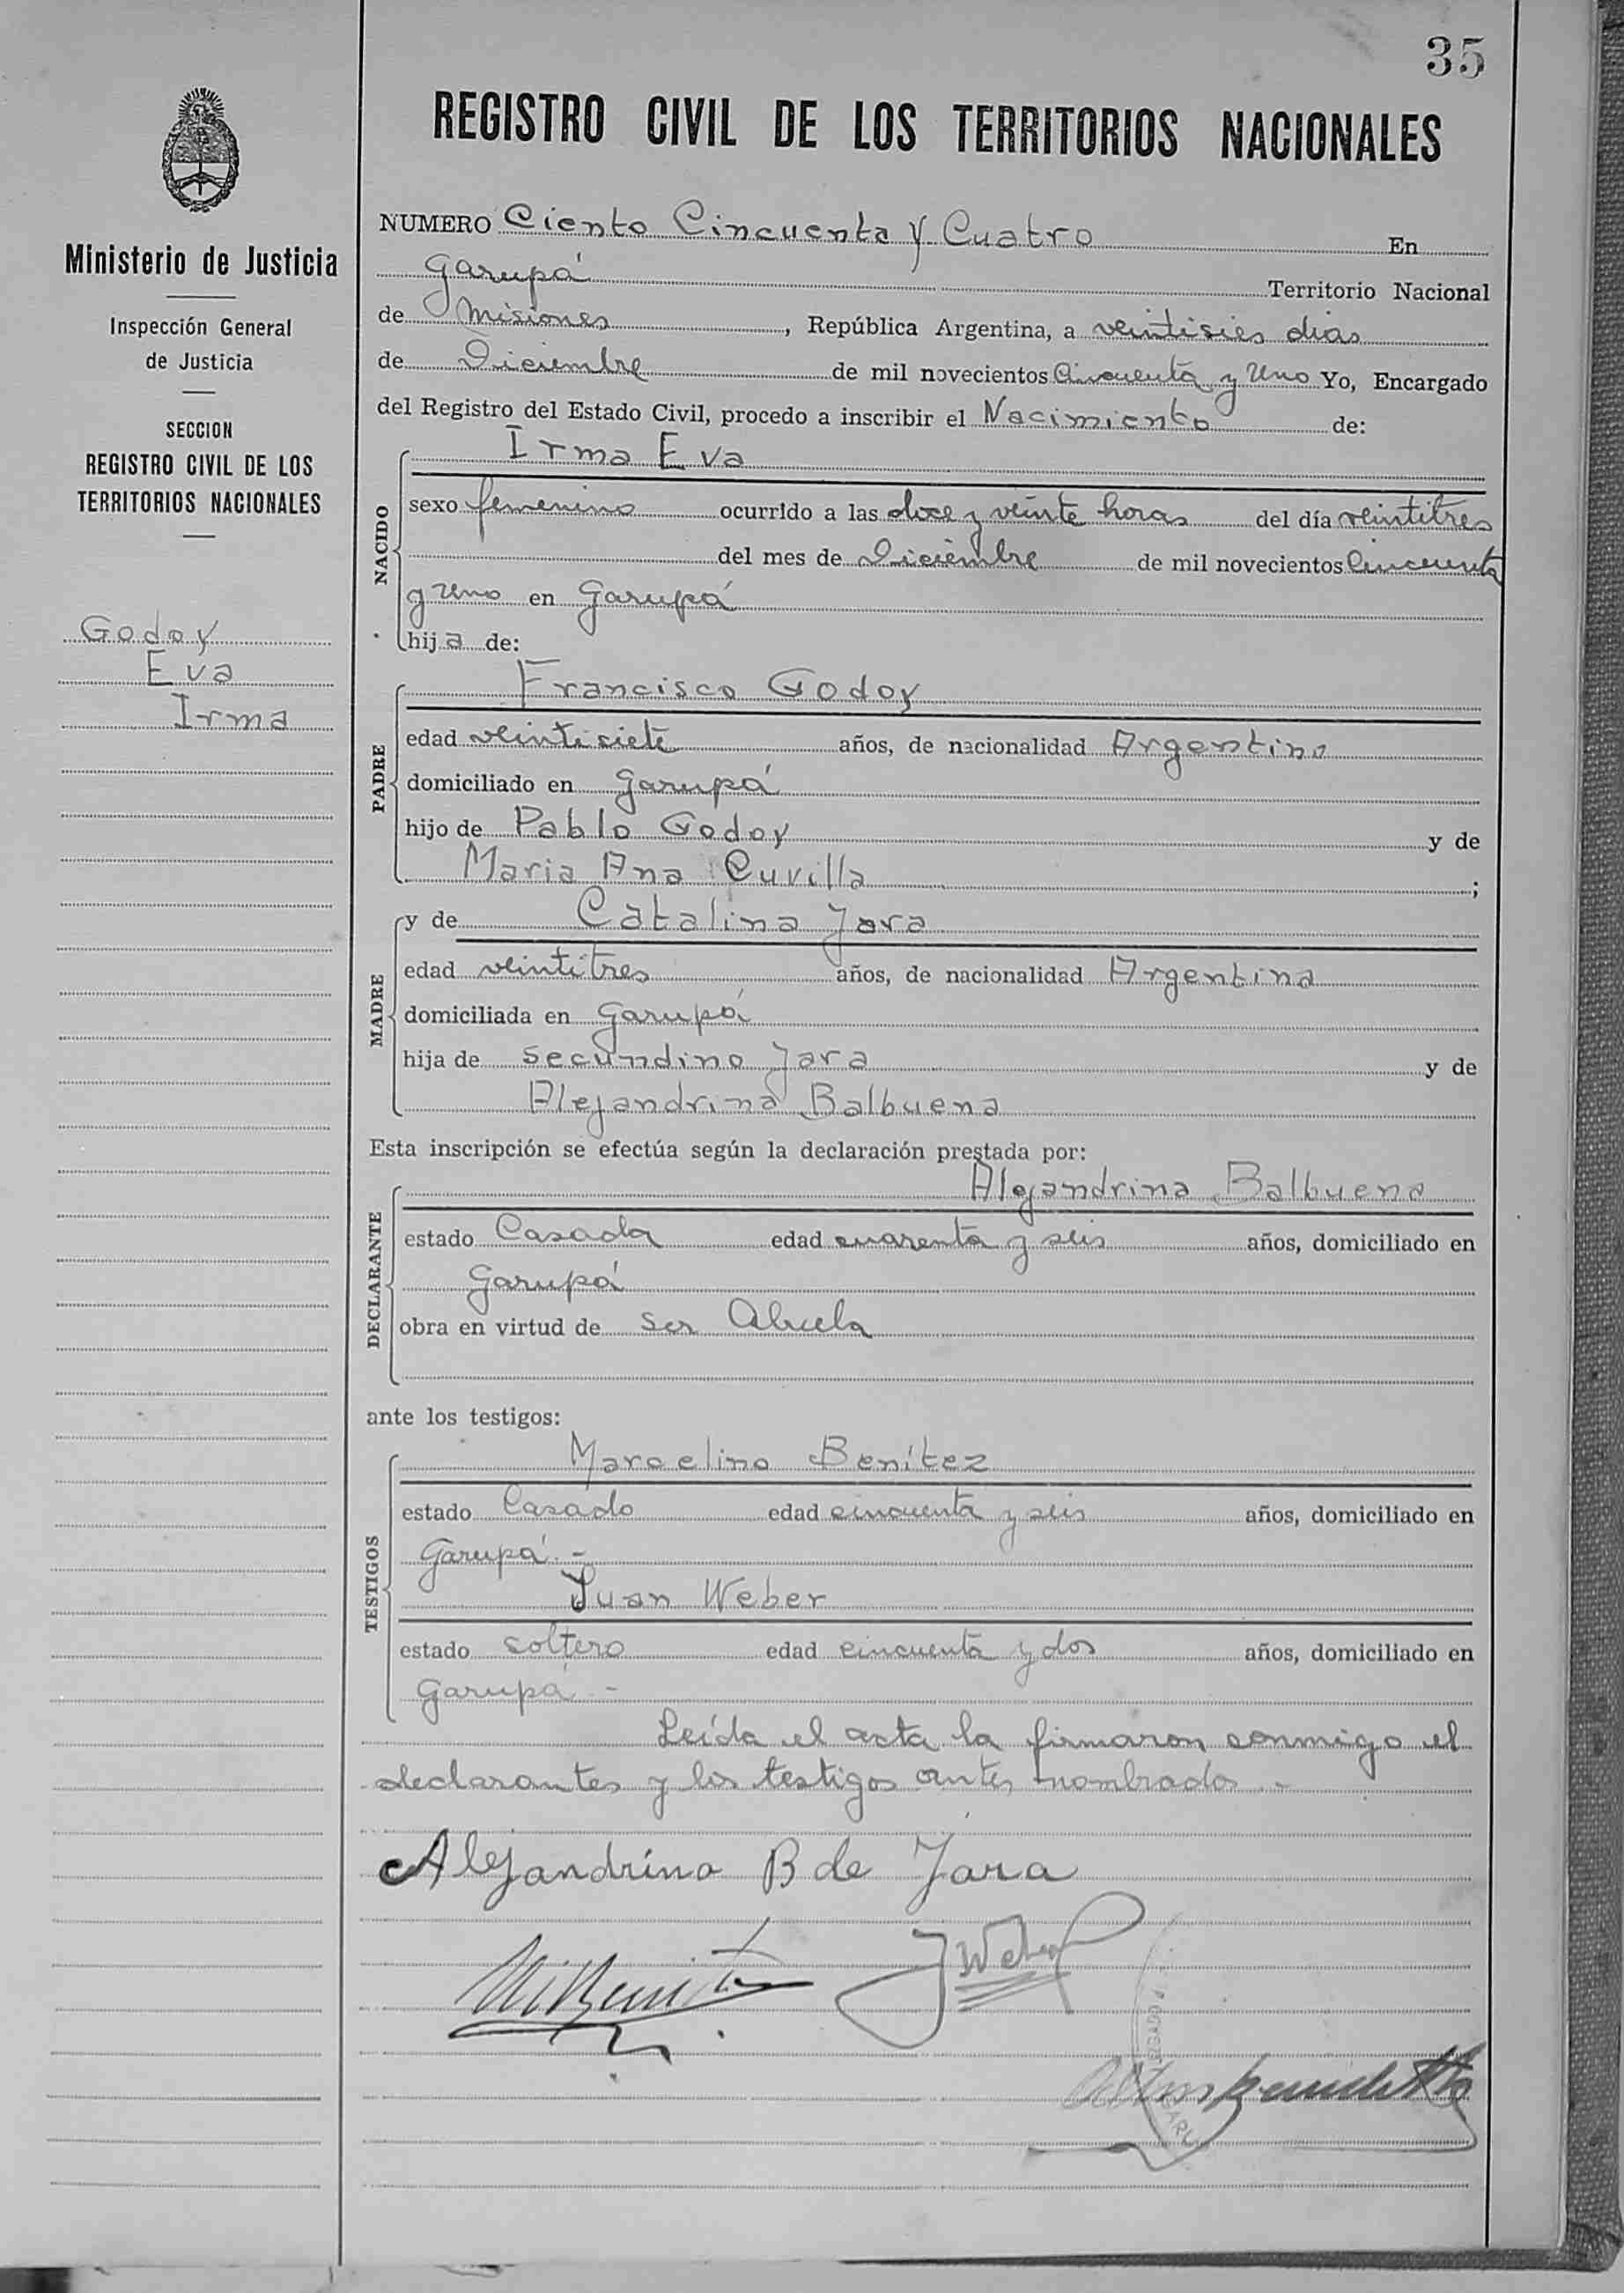 35
REGISTRO CIVIL DE LOS TERRITORIOS NACIONALES
Ministerio de Justicia
Inspección General
de Justicia
SECCION
REGISTRO CIVIL DE LOS
TERRITORIOS NACIONALES
Godoy
Eva
Irma
NUMERO Ciento Cincuenta y Cuatro En
Garupá Territorio Nacional
de Misiones, República Argentina, a veintiseis dias
de Diciembre de mil novecientos Cincuenta y Uno Yo, Encargado
del Registro del Estado Civil, procedo a inscribir el Nacimiento de:
NACIDO
Irma Eva
sexo femenino ocurrido a las doce y veinte horas del día veintitres
del mes de Diciembre de mil novecientos Cincuenta
y Uno en Garupá
hija de:
PADRE
Francisco Godoy
edad veintisiete años, de nacionalidad Argentino
domiciliado en Garupá
hijo de Pablo Godoy y de
Maria Ana Cuvilla;
MADRE
y de Catalina Jara
edad veintitres años, de nacionalidad Argentina
domiciliada en Garupá
hija de Secundino Jara y de
Alejandrina Balbuena
Esta inscripción se efectúa según la declaración prestada por:
DECLARANTE
Alejandrina Balbuena
estado Casada edad cuarenta y seis años, domiciliado en
Garupá
obra en virtud de ser Abuela
ante los testigos:
TESTIGOS
Marcelino Benítez
estado Casado edad cincuenta y seis años, domiciliado en
Garupá.-
Juan Weber
estado soltero edad cincuenta y dos años, domiciliado en
Garupá.-
Leída el acta la firmaron conmigo el
declarantes y los testigos antes nombrados.-
Alejandrina B de Jara
M Benitez JWeber